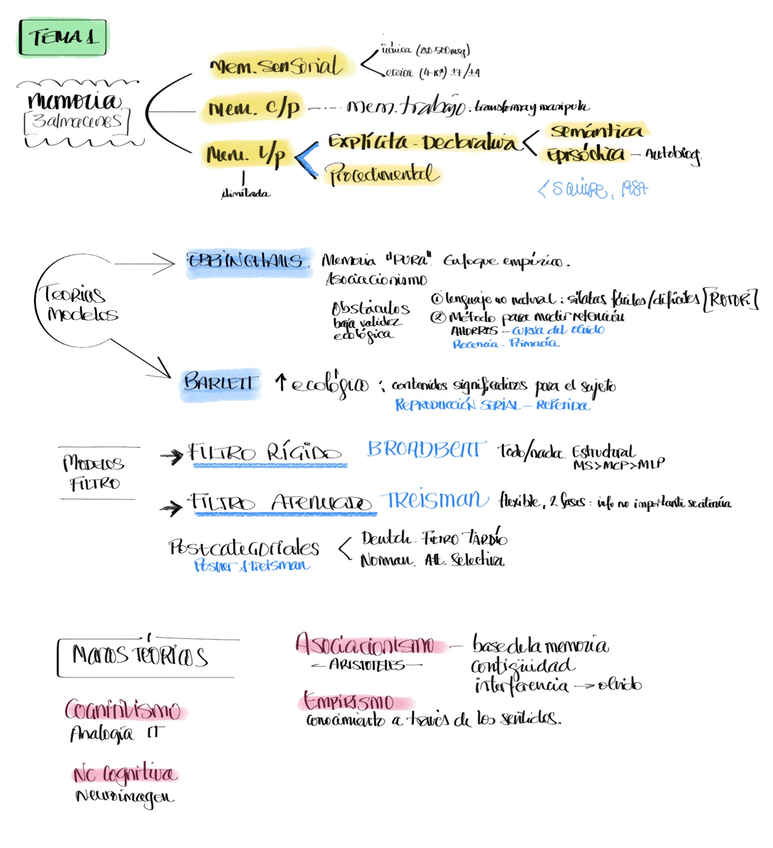 TEMA 1
memoria
[3 almacenes]
Mem. Sensorial
icónica (250-500msg)
ecoica (4-10") ±7/±4
Mem. C/p --- mem. trabajo: transforma y manipula
Mem. L/p
ilimitada
Explícita - Declarativa
Semántica
Episódica - Autobiog.
Procedimental
< Squire, 1987
Teorías
Modelos
EBBINGHAUS. Memoria "PURA" Enfoque empírico.
Asociacionismo
Obstáculos
baja validez
ecológica
① lenguaje no natural: sílabas fáciles/difíciles [ROTOR]
② Método para medir retención
AHORROS - curva del olvido
Recencia - Primacía
BARLETT ↑ ecológico: contenidos significativos para el sujeto
REPRODUCCIÓN SERIAL - REPETIDA
MODELOS
FILTRO
→ FILTRO RÍGIDO BROADBENT Todo/nada. Estructural
MS>MCP>MLP
→ FILTRO ATENUADO TREISMAN flexible, 2 fases: info no importante se atenúa
Postcategoriales
Posner & Treisman
Deutch. FILTRO TARDÍO
Norman. At. Selectiva
MARCOS TEÓRICOS
Cognitivismo
Analogía IT
Nc Cognitiva
Neuroimagen
Asociacionismo
- ARISTOTELES -
base de la memoria
contigüidad
interferencia → olvido
Empirismo
conocimiento a través de los sentidos.